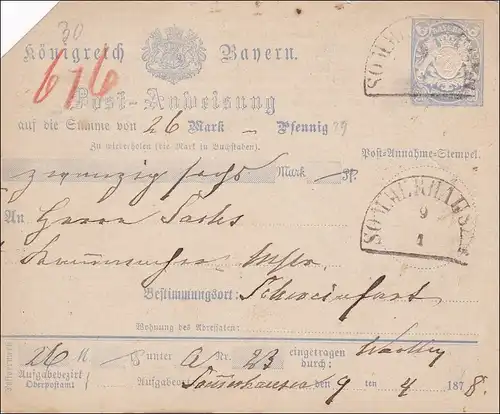 30
Königreich Bayern.
616
Post-Anweisung
auf die Summe von 26 Mark – Pfennig 29
Zu wiederholen (die Mark in Buchstaben).
Post-Annahme-Stempel.
zwanzig sechs Mark Pf.
SOMMERHAUSEN
9
1
An Herrn Sachs
Bestimmungsort: Schweinfurt
Wohnung des Adressaten:
26 M unter A Nr. 23 eingetragen durch:
Aufgabebezirk
Oberpostamt
Aufgabe Sommerhausen den 9 ten 1 1878.